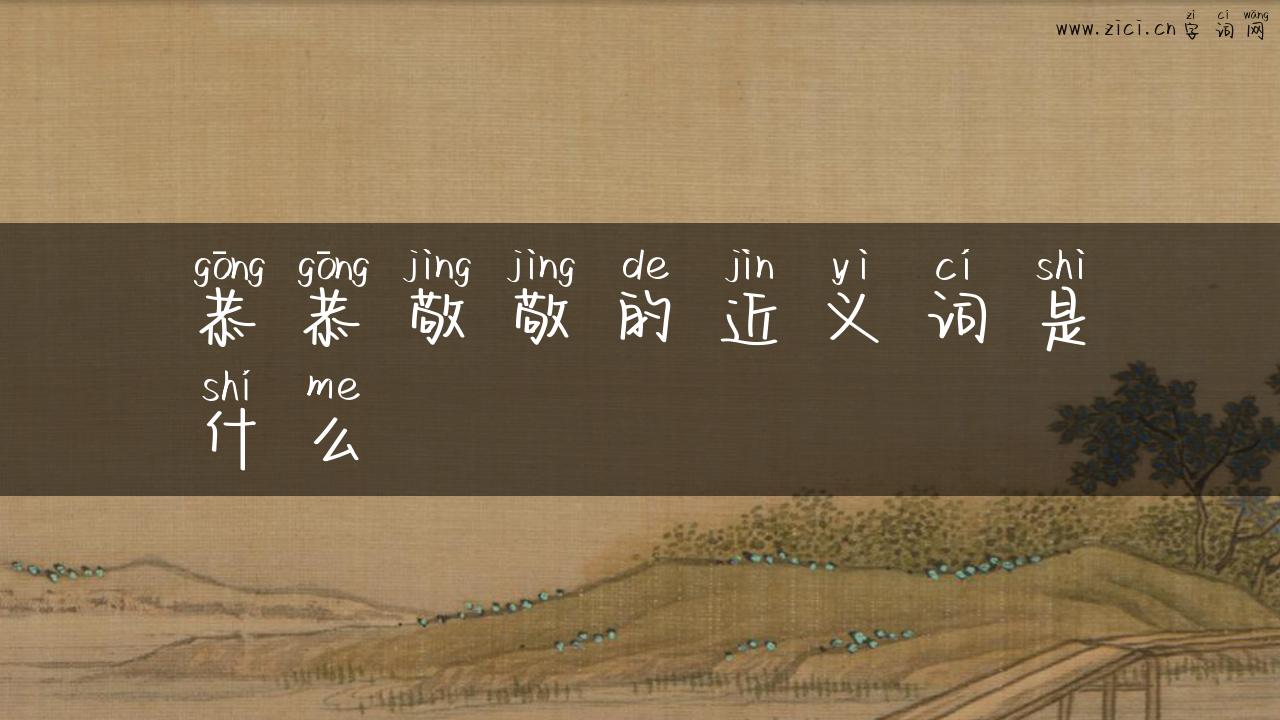 zì cí wǎng
www.zici.cn 字词网
gōng gōng jìng jìng de jìn yì cí shì
恭恭敬敬的近义词是
shí me
什么